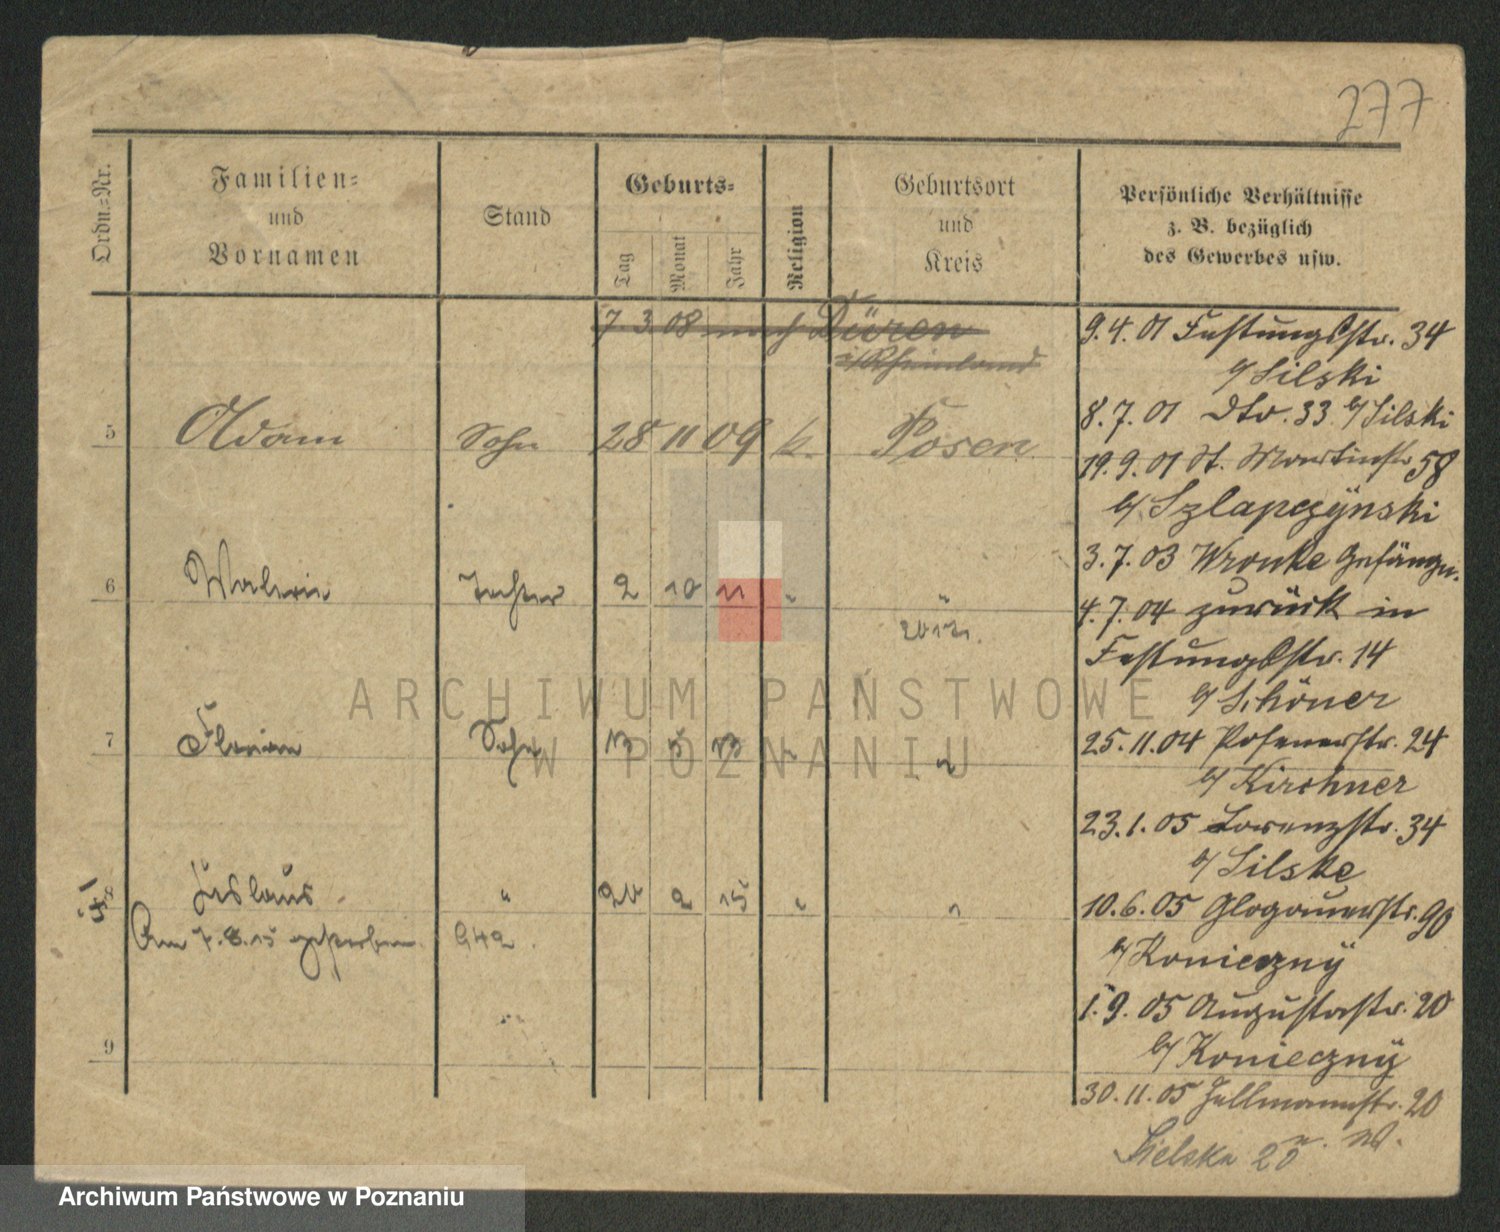 277
Ordn.-Nr.
Familien-
und
Vornamen
Stand
Geburts-
Tag
Monat
Jahr
Religion
Geburtsort
und
Kreis
Persönliche Verhältnisse
z. B. bezüglich
des Gewerbes usw.
7 3. 08 nach Düren
i/Rheinland
5 Adam Sohn 28 11 09 k. Posen
6 Tochter 2 10 11 "
7 Florian Sohn 13 5 13 "
8 " 20 2 15 "
Am 7.8.15 gestorben. 942.
9
9.4.01 Festungsstr. 34
b/ Silski
8.7.01 Dto. 33 b/ Silski
19.9.01 St. Martinstr. 58
b/ Szlapczynski
3.7.03 Wronke Gefängn.
4.7.04 zurück in
Festungsstr. 14
b/ Schöner
25.11.04 Posenerstr. 24
b/ Kirchner
23.1.05 Lorenzstr. 34
b/ Silske
10.6.05 Glogauerstr. 90
b/ Konieczny
1.9.05 Augustastr. 20
b/ Konieczny
30.11.05 20
ARCHIWUM PAŃSTWOWE
W POZNANIU
Archiwum Państwowe w Poznaniu